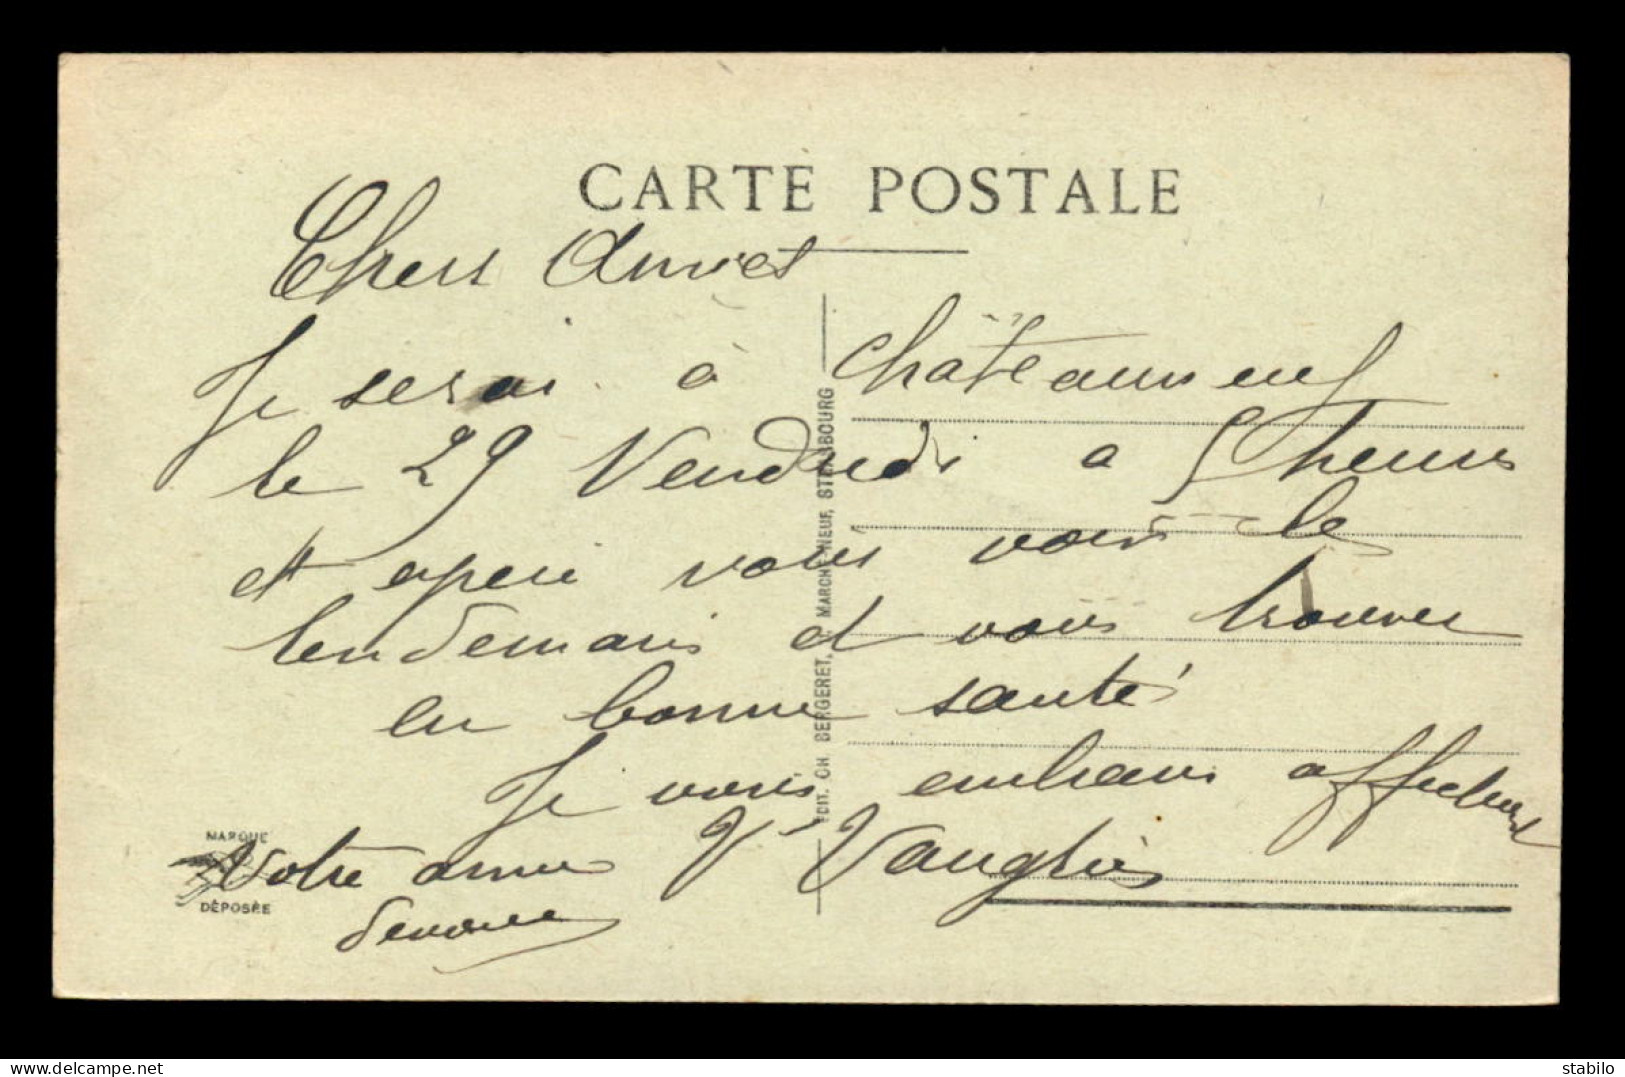 CARTE POSTALE
Chers Amies
Je serai à Châteauneuf
le 29 Vendredi a 5 heures
et espere vous voir le
lendemain et vous trouver
en bonne santé
Je vous embrasse
Votre amie Vve
EDIT. CH. BERGERET, MARCHÉ-NEUF, STRASBOURG
MARQUE
DÉPOSÉE
delcampe.net
stabilo